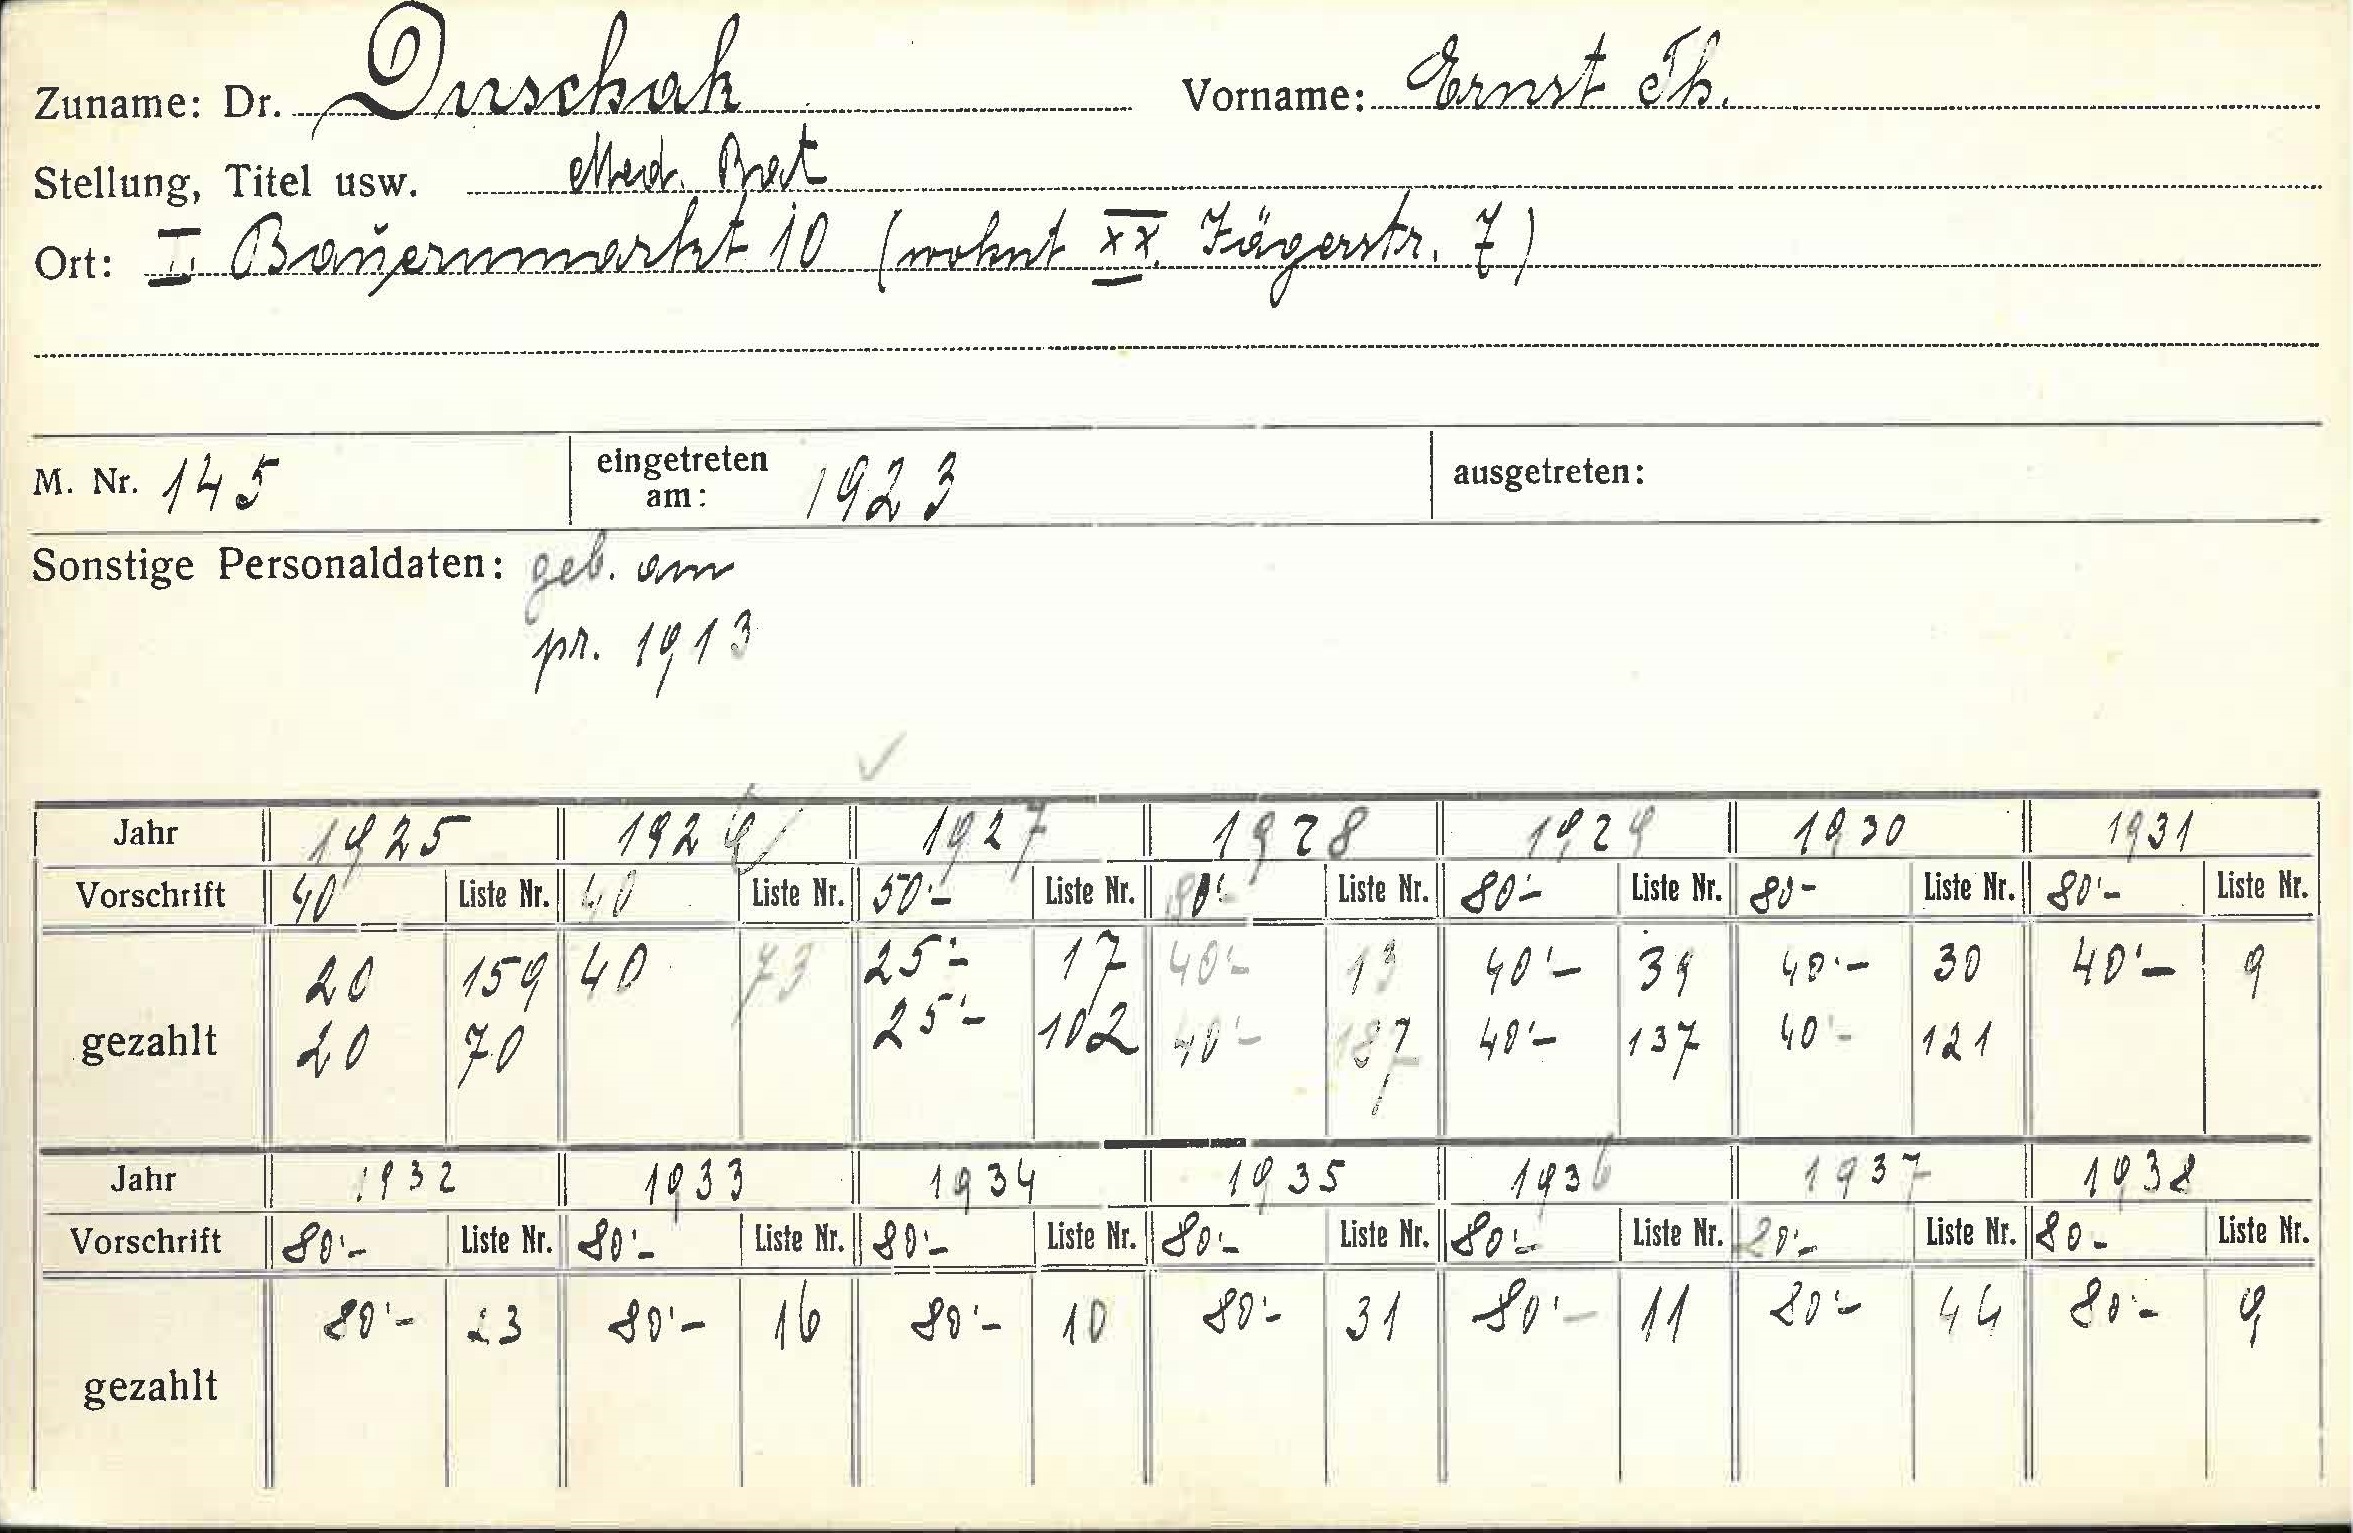 Zuname: Dr. Duschak Vorname: Ernst Th.
Stellung, Titel usw. Med. Rat
Ort: I. Bauernmarkt 10 (wohnt XX. Jägerstr. 7)
M. Nr. 145 eingetreten am: 1923 ausgetreten:
Sonstige Personaldaten: geb. am
pr. 1913
Jahr 1925 1926 1927 1928 1929 1930 1931
Vorschrift 40 Liste Nr. 40 Liste Nr. 50'- Liste Nr. 80'- Liste Nr. 80'- Liste Nr. 80- Liste Nr. 80'- Liste Nr.
20 159 40 73 25'- 17 40'- 13 40'- 39 40'- 30 40'- 9
gezahlt 20 70 25'- 102 40'- 137 40'- 137 40'- 121
Jahr 1932 1933 1934 1935 1936 1937 1938
Vorschrift 80'- Liste Nr. 80'- Liste Nr. 80'- Liste Nr. 80'- Liste Nr. 80'- Liste Nr. 80'- Liste Nr. 80- Liste Nr.
80'- 23 80'- 16 80'- 10 80'- 31 80'- 11 80'- 44 80'- 9
gezahlt